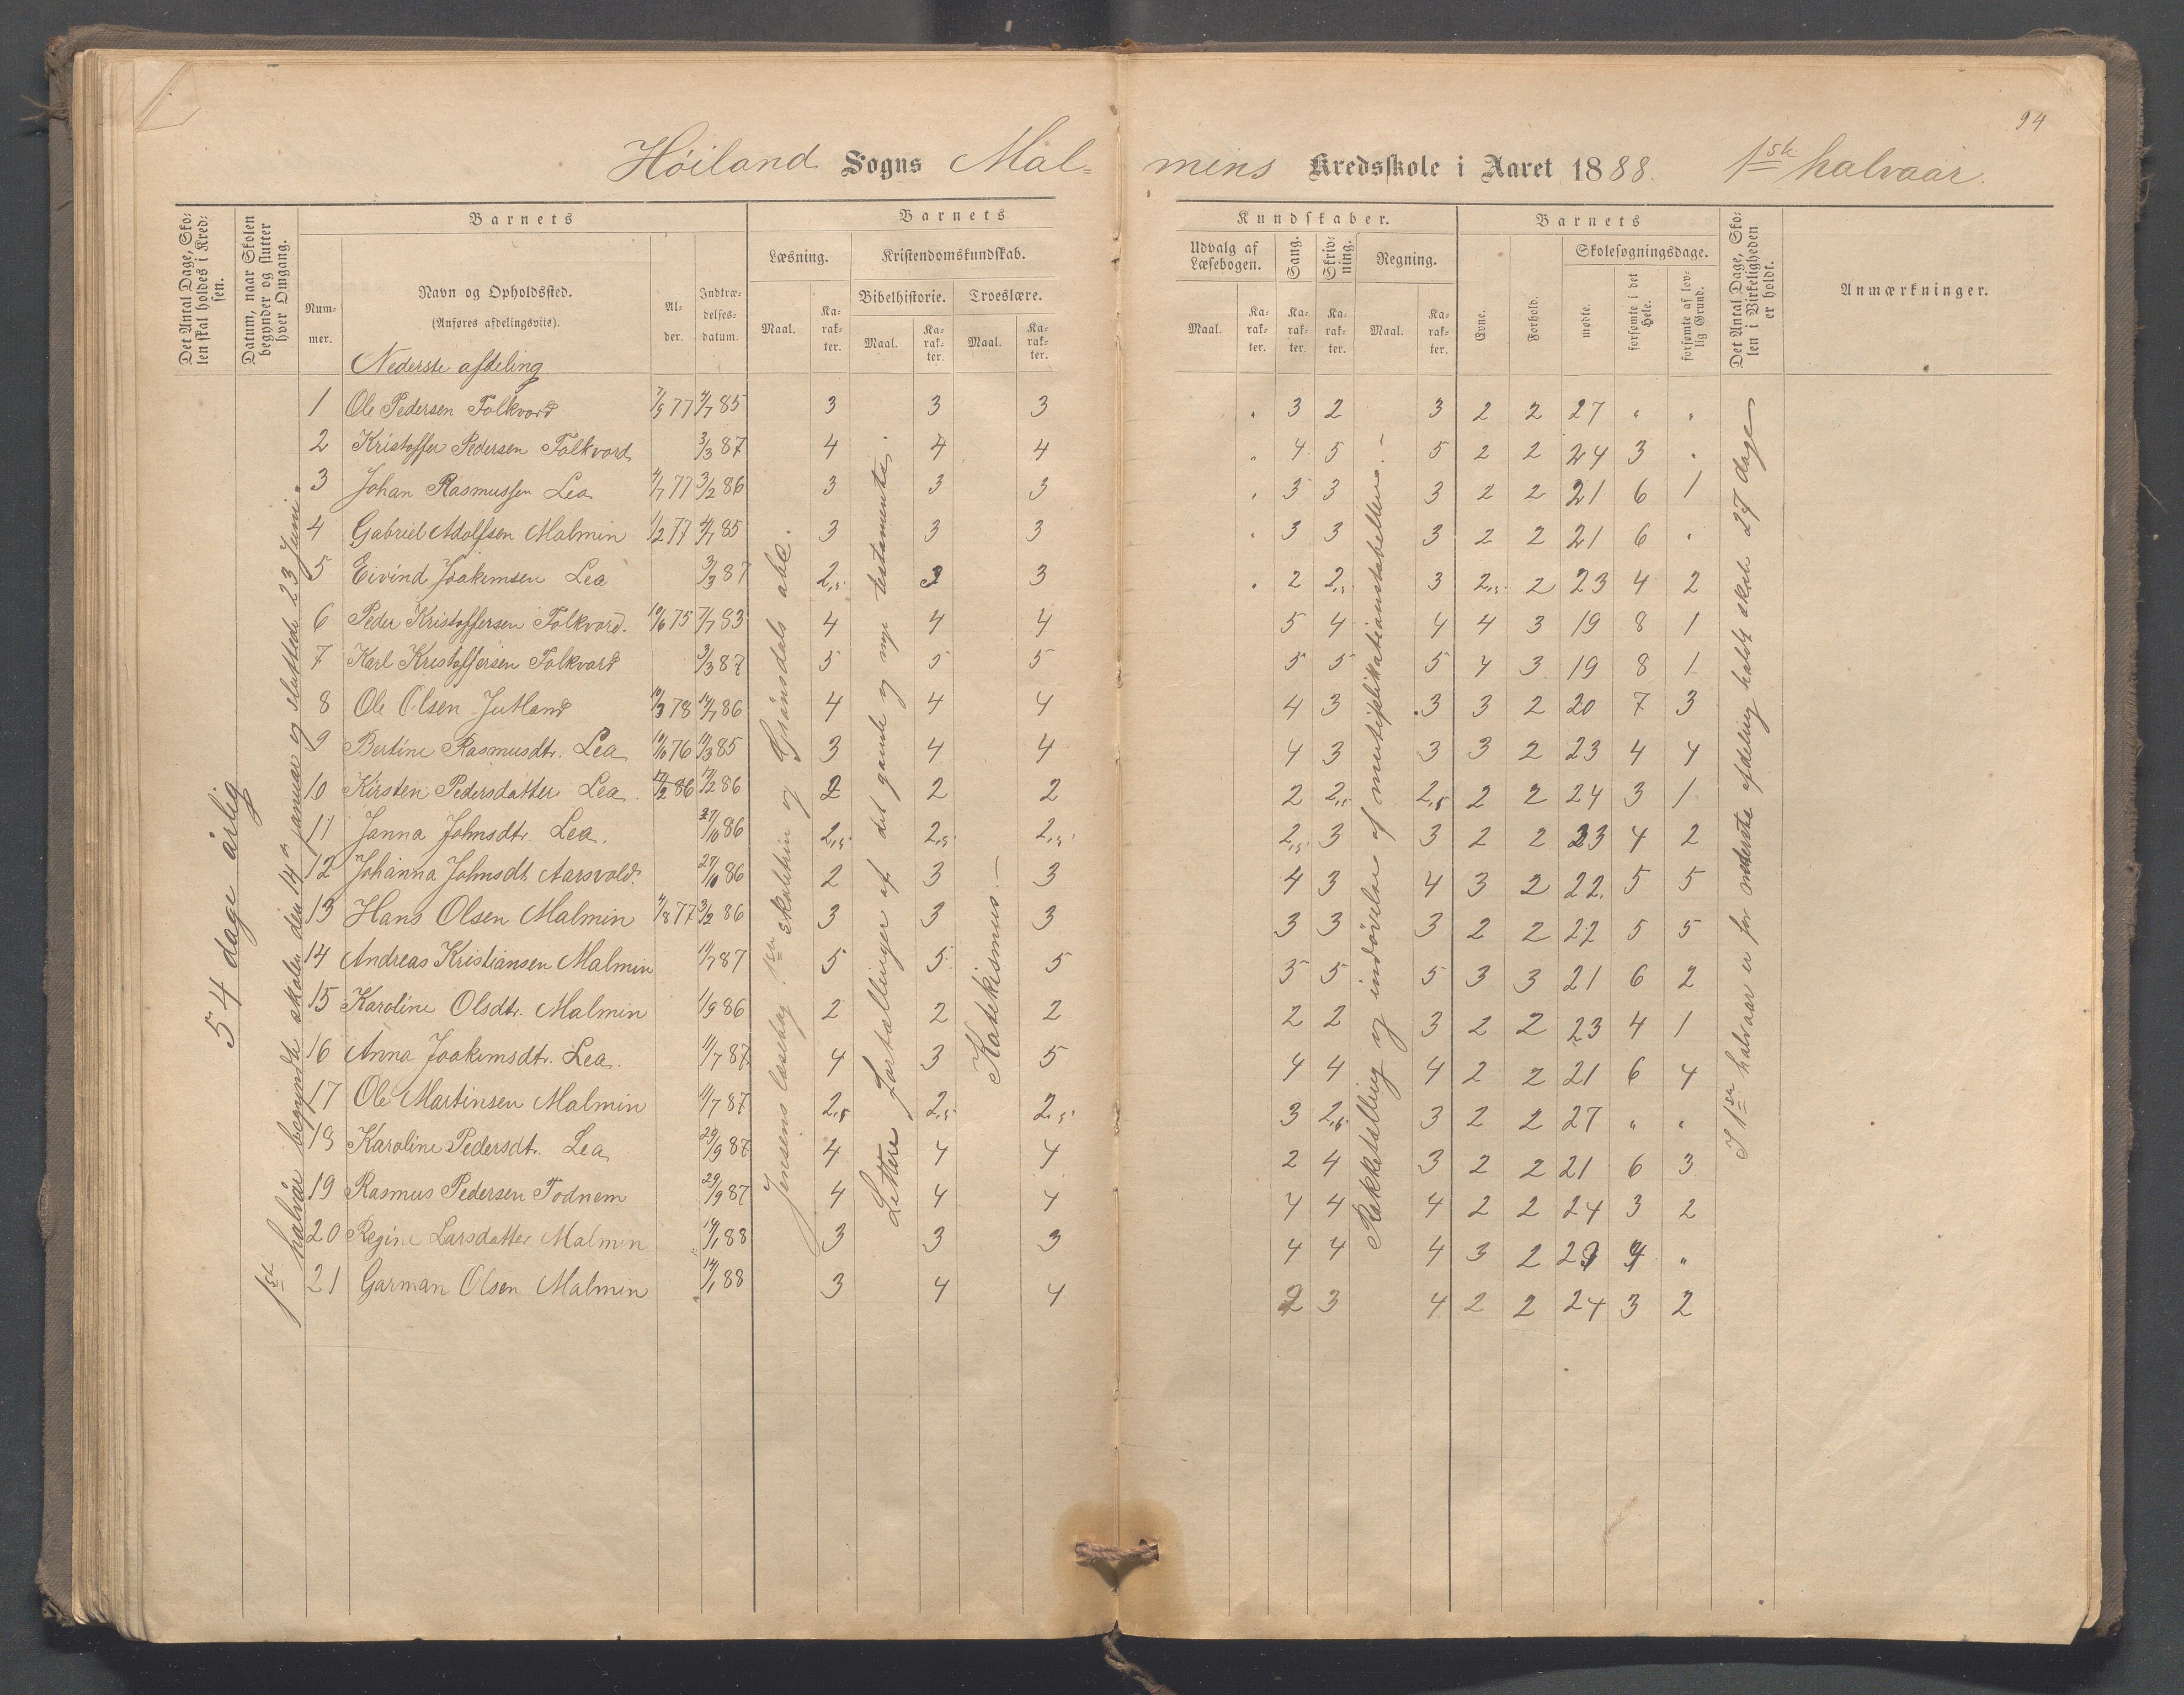 94
Höiland Sogns Mal-
mins Kredsskole i Aaret 1888. 1ste halvaar.
Det Antal Dage, Sko-
len skal holdes i Kred-
sen.
Datum, naar Skolen
begynder og slutter
hver Omgang.
Barnets
Num-
mer.
Navn og Opholdssted.
(Anføres afdelingsviis).
Al-
der.
Indtræ-
delses-
datum.
Barnets
Læsning.
Maal.
Ka-
rak-
ter.
Kristendomskundskab.
Bibelhistorie.
Maal.
Ka-
rak-
ter.
Troeslære.
Maal.
Ka-
rak-
ter.
Kundskaber.
Udvalg af
Læsebogen.
Maal.
Ka-
rak-
ter.
Sang.
Ka-
rak-
ter.
Skriv-
ning.
Ka-
rak-
ter.
Regning.
Maal.
Ka-
rak-
ter.
Barnets
Evne.
Forhold.
Skolesøgningsdage.
mødte.
forsømte i det
Hele.
forsømte af lov-
lig Grund.
Det Antal Dage, Sko-
len i Virkeligheden
er holdt.
Anmærkninger.
Nederste afdeling
1 Ole Pedersen Folkvord 7/9 77 4/7 85 3 3 3 " 3 2 3 2 2 27 " "
2 Kristoffer Pedersen Folkvord 3/3 87 4 4 4 " 4 5 5 2 2 24 3 "
3 Johan Rasmussen Lea 4/7 77 3/2 86 3 3 3 " 3 3 3 2 2 21 6 1
4 Gabriel Adolfsen Malmin 1/2 77 4/7 85 3 3 3 " 3 3 3 2 2 21 6 "
5 Eivind Joakimsen Lea 3/3 87 2,5 3 3 " 2 2,5 3 2,5 2 23 4 2
6 Peder Kristoffersen Folkvord. 10/6 75 7/7 83 4 4 4 5 4 4 4 3 19 8 1
7 Karl Kristoffersen Folkvord 3/3 87 5 5 5 5 5 5 4 3 19 8 1
8 Ole Olsen Jutland 10/3 78 12/7 86 4 4 4 4 3 3 3 2 20 7 3
9 Bertine Rasmusdtr. Lea 76 85 3 4 4 4 3 3 3 2 23 4 4
10 Kirsten Pedersdatter Lea 12/2 86 12/2 86 2 2 2 2 2,5 2,5 2 2 24 3 1
11 Janna Johnsdtr. Lea. 27/10 86 2,5 2,5 2,5 2,5 3 3 2 2 23 4 2
12 Johanna Johnsdt. Aarsvold. 27/10 86 2 3 3 4 3 4 3 2 22. 5 5
13 Hans Olsen Malmin 4/8 77 3/2 86 3 3 3 3 3 3 2 2 22 5 5
14 Andreas Kristiansen Malmin 11/7 87 5 5 5 5 5 5 3 3 21 6 2
15 Karoline Olsdtr. Malmin 1/9 86 2 2 2 2 2 3 2 2 23 4 1
16 Anna Joakimsdtr. Lea. 11/7 87 4 3 5 4 4 4 2 2 21 6 4
17 Ole Martinsen Malmin 11/7 87 2,5 2,5 2,5 3 2,5 3 2 2 27 " "
18 Karoline Pedersdt. Lea 29/9 87 4 4 4 2 4 3 2 2 21 6 3
19 Rasmus Pedersen Todnem 29/9 87 4 4 4 4 4 4 2 2 24 3 2
20 Regine Larsdatter Malmin 14/1 88 3 3 3 4 4 4 3 2 4 "
21 Garman Olsen Malmin 14/1 88 3 4 4 2 3 4 2 2 24 3 2
54 dage årlig
1ste halvår begyndte skolen den 14de januar og sluttede 23 Juni.
Jensens læsebog 1ste skoletrin og abc.
Lettere fortællinger af det gamle og nye testamente.
Katekismus. —
Rækketælling og indøvelse af multiplikationstabellen. —
I 1ste halvaar er for nederste afdeling holdt skole 27 dage